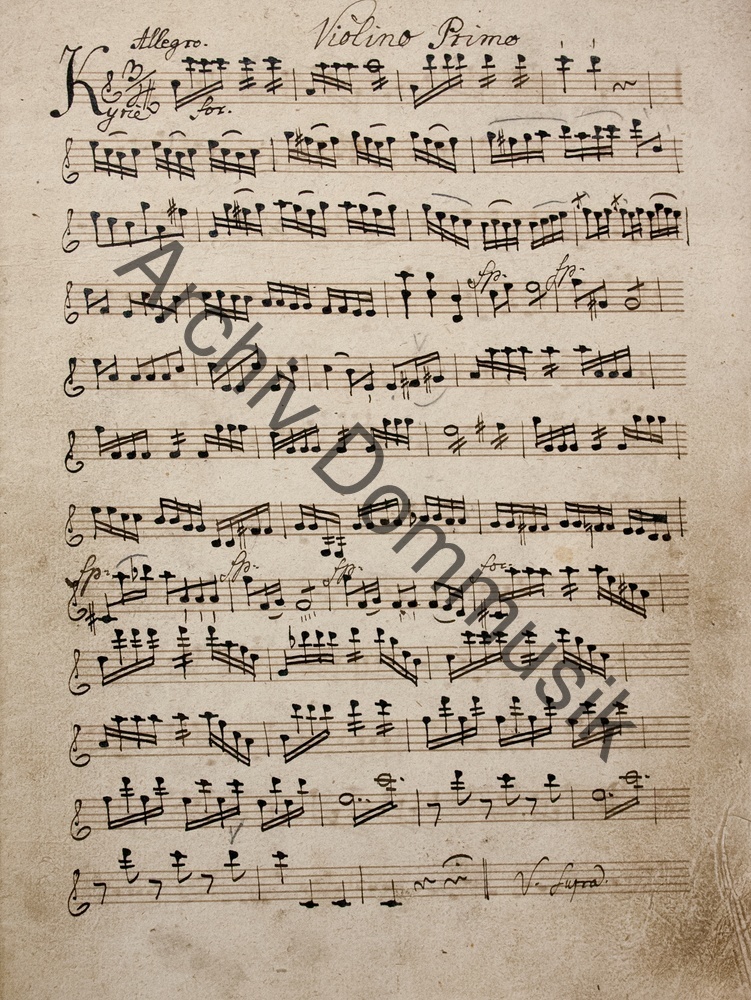 Allegro. Violino Primo
Kyrie for.
fp. fp.
fp. fp. fp. for.
V. Supra.
Archiv Dommusik